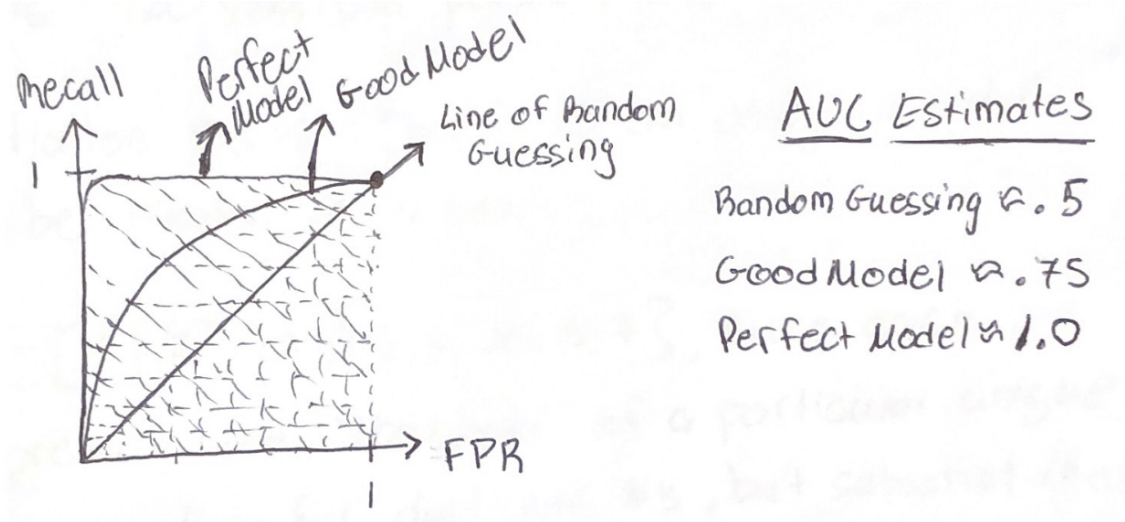 Recall
Perfect
Model
Good Model
Line of Random
Guessing
1
FPR
1
AUC Estimates
Random Guessing ≈ .5
Good Model ≈ .75
Perfect Model ≈ 1.0